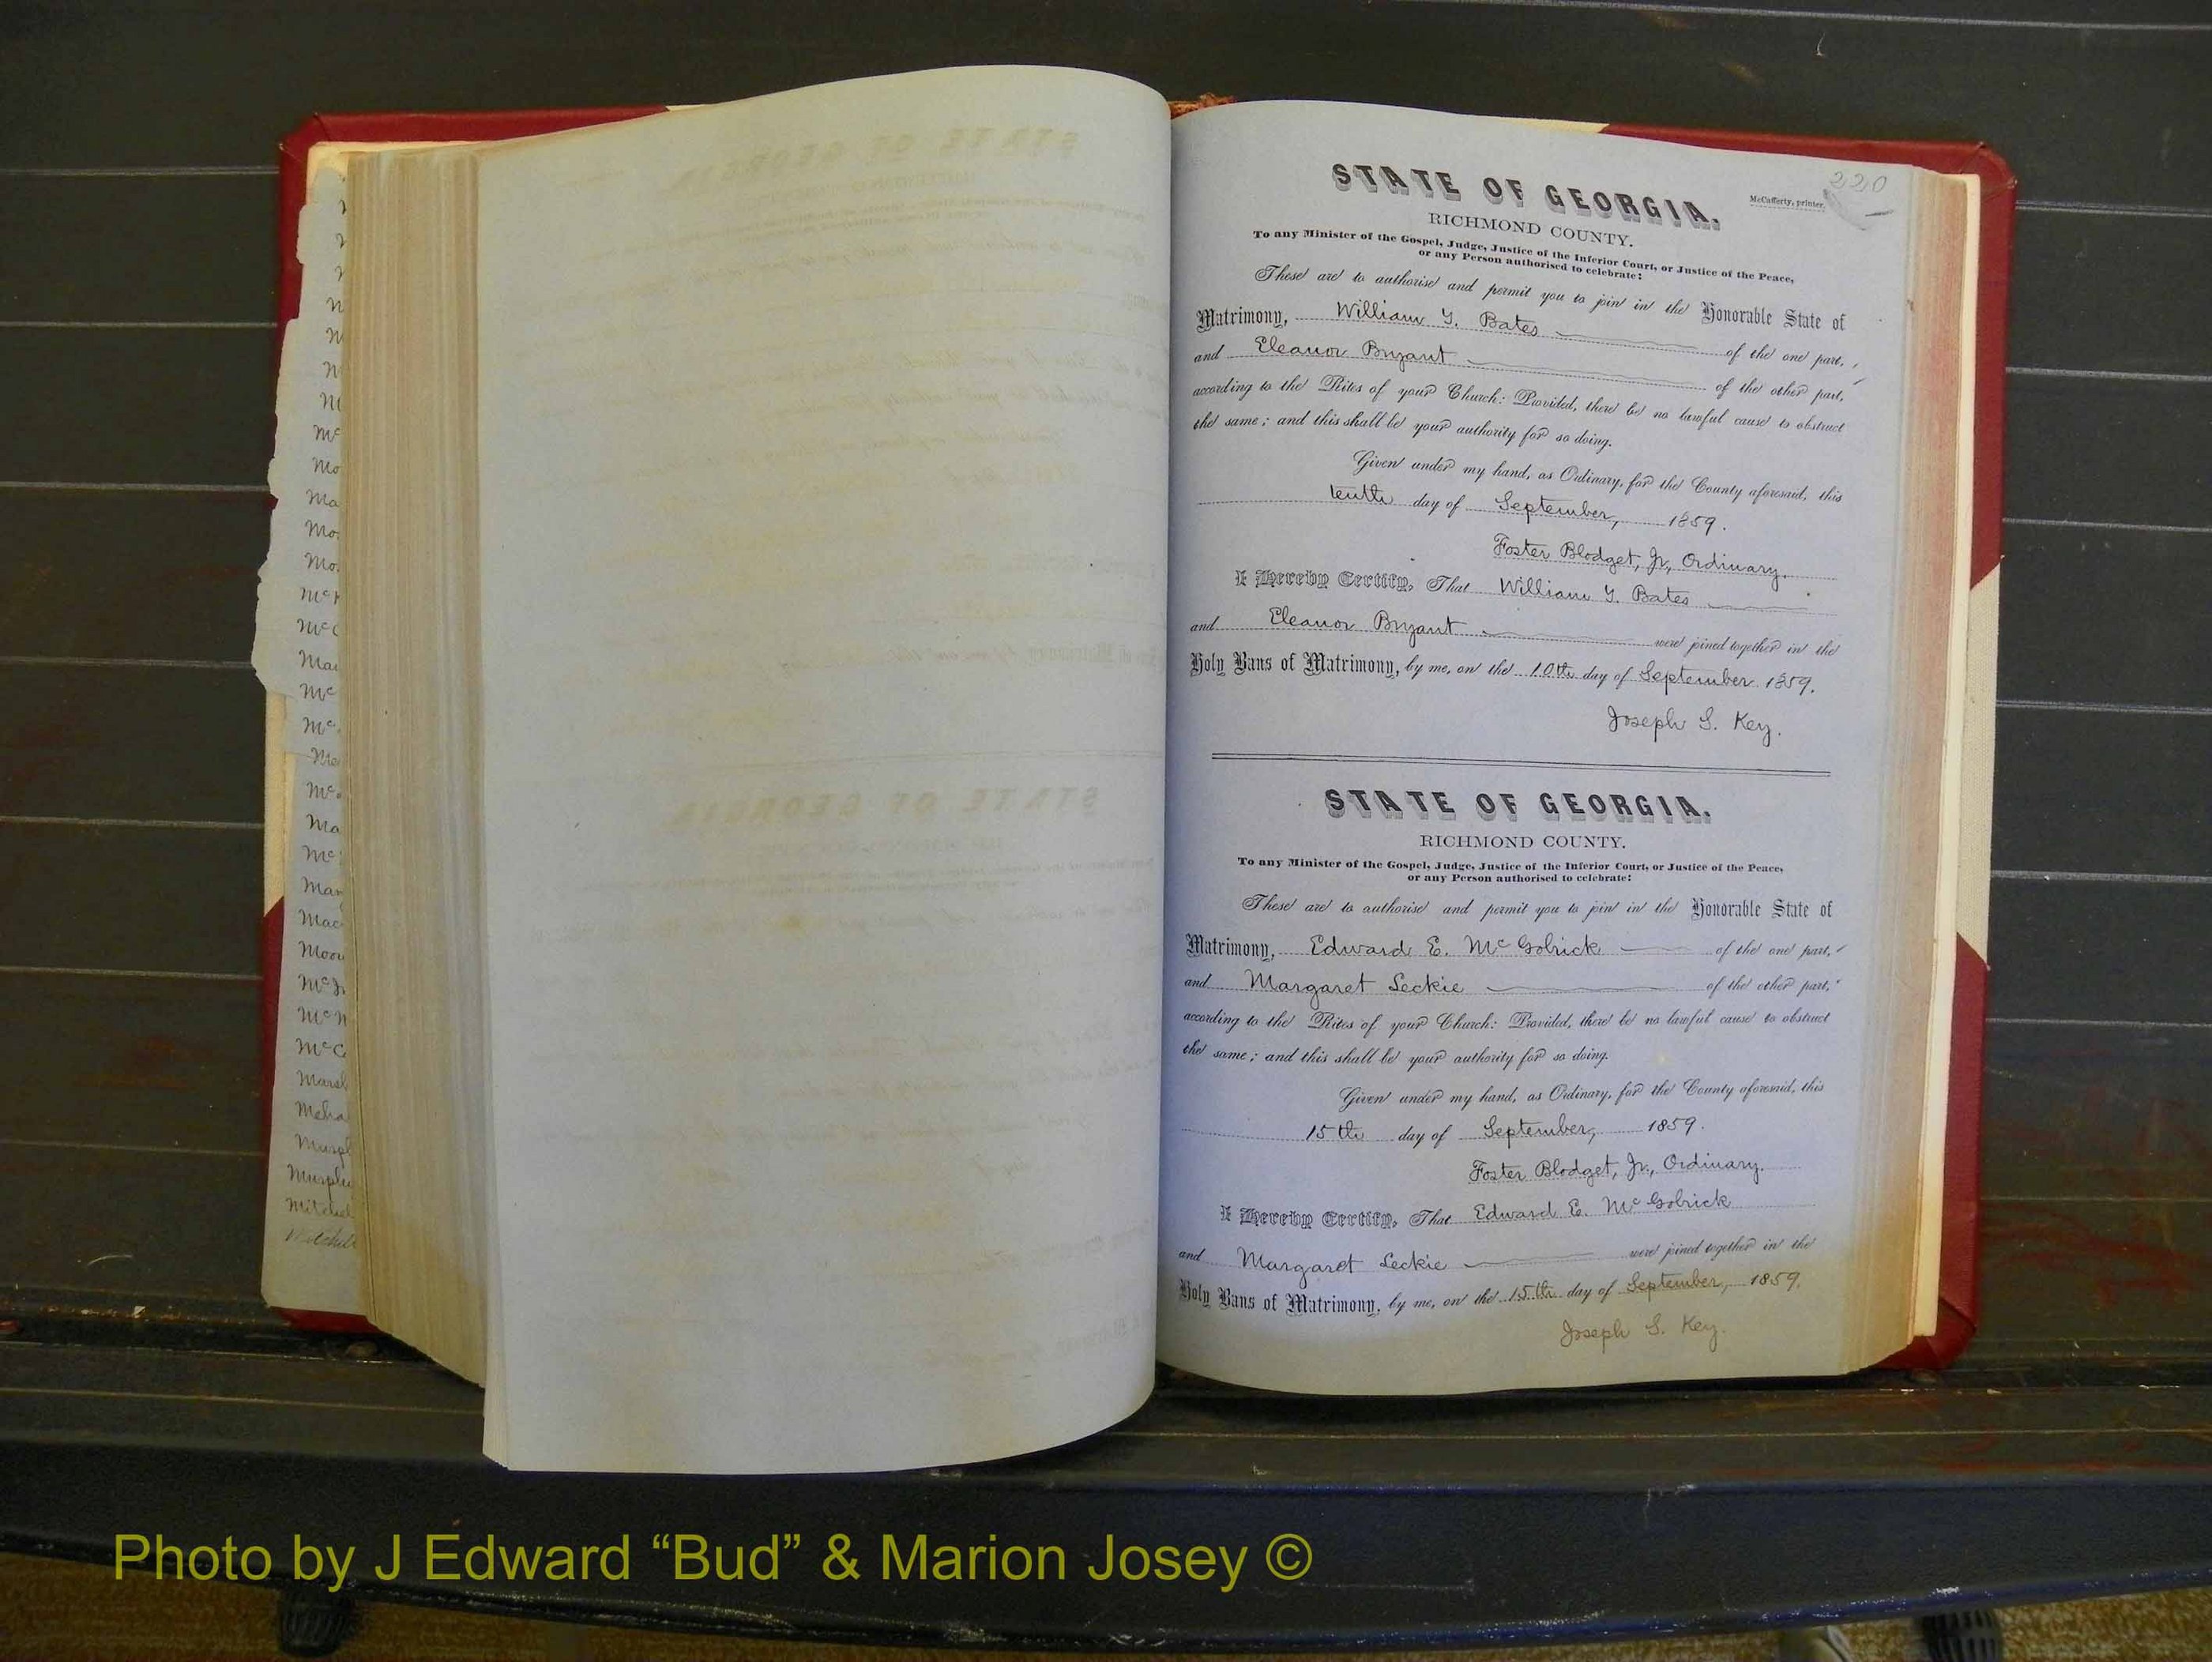 220
McCafferty, printer.
STATE OF GEORGIA.
RICHMOND COUNTY.
To any Minister of the Gospel, Judge, Justice of the Inferior Court, or Justice of the Peace,
or any Person authorised to celebrate:
These are to authorise and permit you to join in the Honorable State of
Matrimony, William Y. Bates of the one part,
and Eleanor Bryant of the other part,
according to the Rites of your Church: Provided, there be no lawful cause to obstruct
the same; and this shall be your authority for so doing.
Given under my hand, as Ordinary, for the County aforesaid, this
tenth day of September, 1859.
Foster Blodget, Jr., Ordinary.
I Hereby Certify, That William Y. Bates
and Eleanor Bryant were joined together in the
Holy Bans of Matrimony, by me, on the 10th day of September 1859.
Joseph S. Key.
STATE OF GEORGIA.
RICHMOND COUNTY.
To any Minister of the Gospel, Judge, Justice of the Inferior Court, or Justice of the Peace,
or any Person authorised to celebrate:
These are to authorise and permit you to join in the Honorable State of
Matrimony, Edward E. McGolrick of the one part,
and Margaret Leckie of the other part,
according to the Rites of your Church: Provided, there be no lawful cause to obstruct
the same; and this shall be your authority for so doing.
Given under my hand, as Ordinary, for the County aforesaid, this
15th day of September, 1859.
Foster Blodget, Jr., Ordinary.
I Hereby Certify, That Edward E. McGolrick
and Margaret Leckie were joined together in the
Holy Bans of Matrimony, by me, on the 15th day of September, 1859.
Joseph S. Key.
Photo by J Edward “Bud” & Marion Josey ©